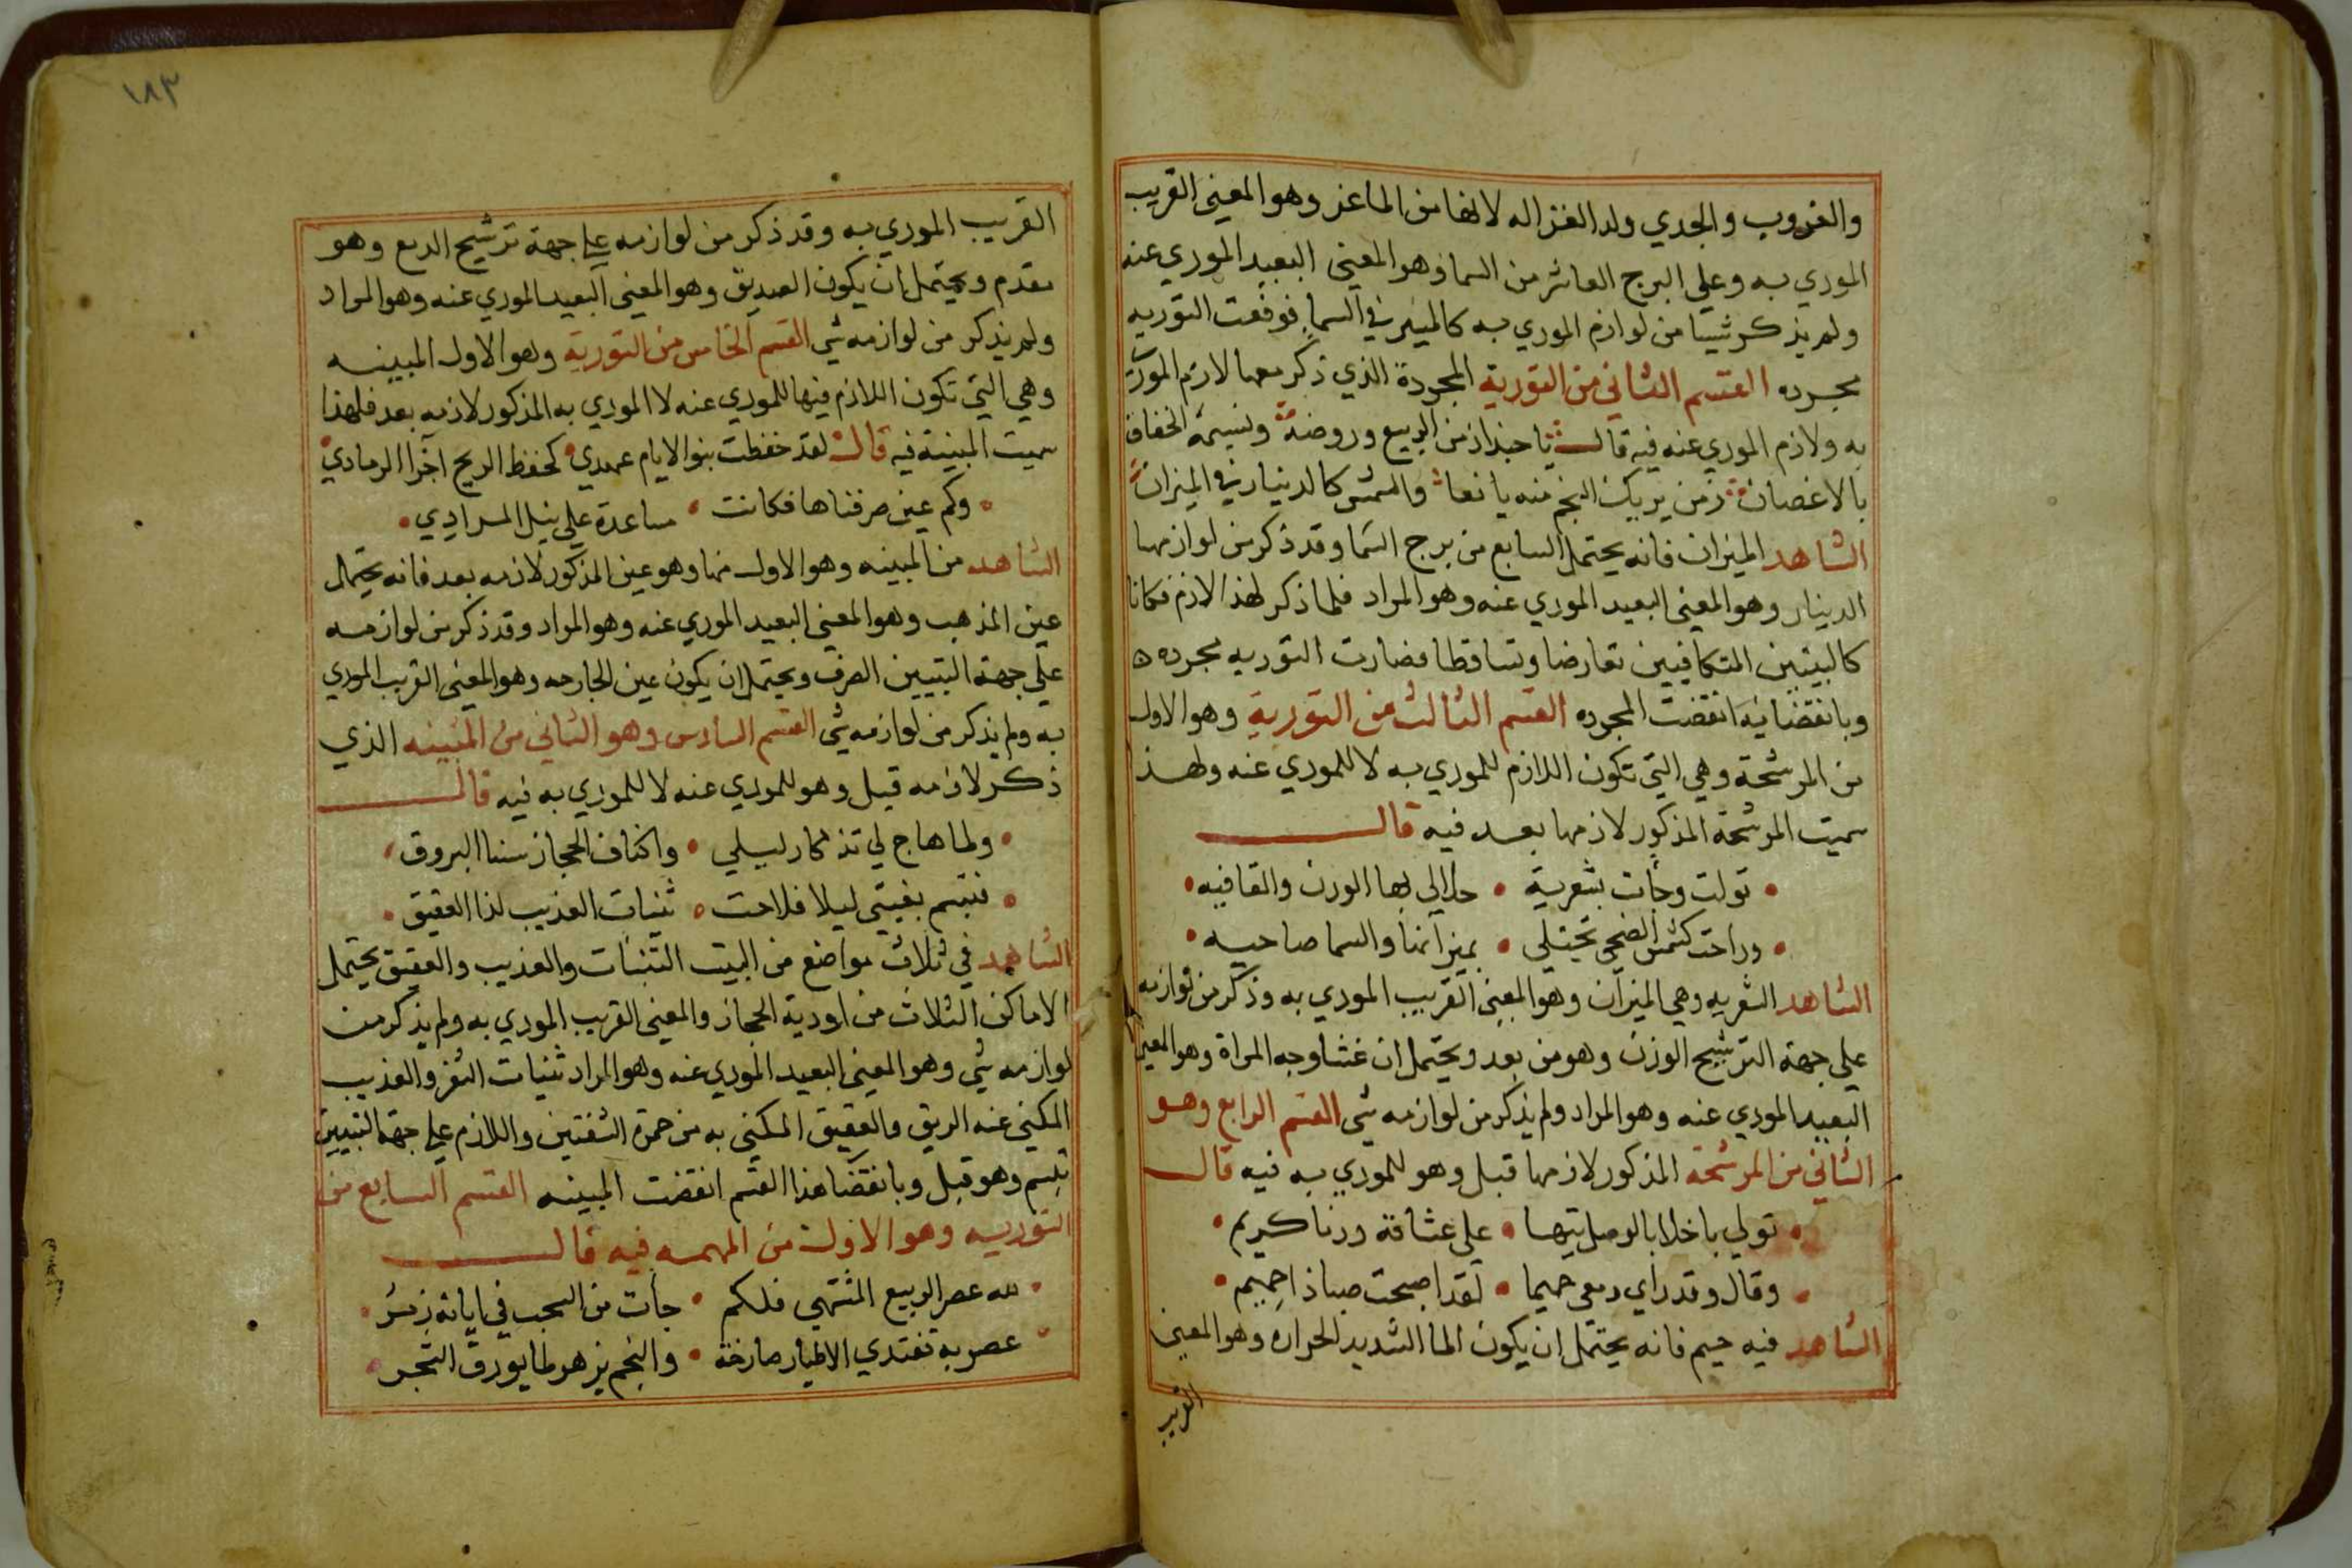 والغروب والجدي ولد الغزاله لانها من الماعز وهو المعني القريب
الموري به وعلي البرج العاشر من السما وهو المعني البعيد الموري عنه
ولم يذكر شييا من لوازم الموري به كالمسير في السما فوقعت التوريه
مجرده القسم الثاني من التورية المجردة الذي ذكر معها لازم الموري
به ولازم الموري عنه فيه قال يا حبذا زمن الربيع وروضة ونسيمه الخفاق
بالاغصان زمن يريك النجم منه يانعا والشمس كالدينار في الميزان
الشاهد الميزان فانه يحتمل السابع من برج السما وقد ذكر من لوازمها
الدينار وهو المعني البعيد الموري عنه وهو المراد فلما ذكر لهذا لازم فكانا
كالبينتين المتكافيين تعارضا وتساقطا فصارت التوريه مجرده ه
وبانقضائه انقضت المجرده القسم الثالث من التورية وهو الاول
من المرشحة وهي التي تكون اللازم للموري به لا للموري عنه ولهذا
سميت المرشحة المذكور لازمها بعد فيه قال
تولت وجأت بشعرية • حلالي بها الوزن والقافيه
وراحت كشمس الضحي تجتلي • بميزاننا والسما صاحيه
الشاهد الشعريه وهي الميزان وهو المعني القريب الموري به وذكر من لوازمه
علي جهة الترشيح الوزن وهو من بعد ويحتمل ان غشا وجه المراة وهو المعني
البعيد الموري عنه وهو المراد ولم يذكر من لوازمه شي القسم الرابع وهو
الثاني من المرشحة المذكور لازمها قبل وهو للموري به فيه قال
تولي باخلا بالوصل تيها • علي عشاقة ورنا كريم
وقال وقد راي دمعي حميما • لقد اصبحت صبا ذا حميم
الشاهد فيه حميم فانه يحتمل ان يكون الما الشديد الحراره وهو المعني
القريب
١٨٣
القريب الموري به وقد ذكر من لوازمه علي جهة ترشيح الدمع وهو
مقدم ويحتمل ان يكون الصديق وهو المعني البعيد الموري عنه وهو المراد
ولم يذكر من لوازمه شي القسم الخامس من التورية وهو الاول المبينه
وهي التي تكون اللازم فيها للموري عنه لا الموري به المذكور لازمه بعد فلهذا
سميت المبينة فيه قال لقد حفظت بنو الايام عهدي كحفظ الريح اجزا الرمادي
وكم عين صرفناها فكانت • مساعدة علي نيل المرادي
الشاهد من المبينه وهو الاول منها وهو عين المذكور لازمه بعد فانه يحتمل
عين المذهب وهو المعني البعيد الموري عنه وهو المراد وقد ذكر من لوازمه
علي جهة التبيين الصرف ويحتمل ان يكون عين الجارحه وهو المعني القريب الموري
به ولم يذكر من لوازمه شي القسم السادس وهو الثاني من المبينه الذي
ذكر لازمه قبل وهو للموري عنه لا للموري به فيه قال
ولما هاج لي تذكار ليلي • واكناف الحجاز سنا البروق
فتبسم بغيتي ليلا فلاحت • ثنيات العذيب لذا العقيق
الشاهد في ثلاث مواضع من البيت الثنيات والعذيب والعقيق يحتمل
الاماكن الثلاث من اودية الحجاز والمعني القريب الموري به ولم يذكر من
لوازمه شي وهو المعني البعيد الموري عنه وهو المراد ثنيات الثغر والعذيب
المكني عنه الريق والعقيق المكني به من حمرة الشفتين واللازم علي جهة التبيين
تبسم وهو قبل وبانقضا هذا القسم انقضت المبينه القسم السابع من
التوريه وهو الاول من المهمه فيه قال
لله عصر الربيع المشتهي فلكم • جأت من السحب في اياته
عصر به تغتدي الاطيار صارخة • والنجم يزهر طا يورق الشجر